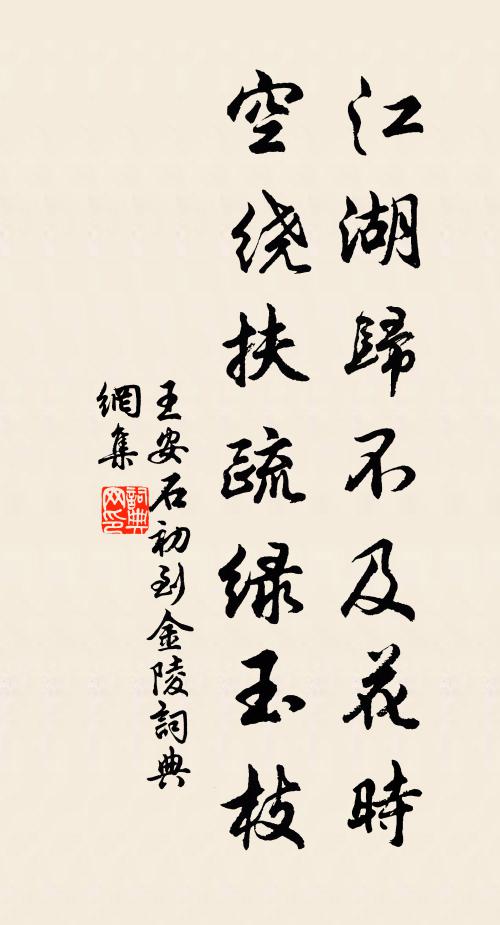 江湖歸不及花時
空绕扶疏绿玉枝
王安石初到金陵詞典
網集
詞典
网印